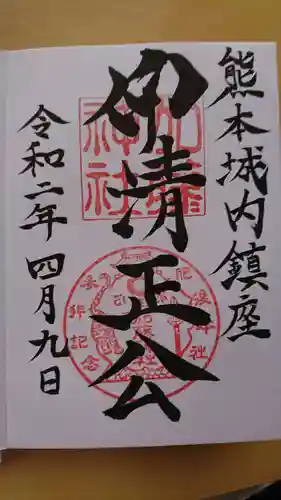 熊本城内鎮座
仰清正公
令和二年四月九日
加藤神社